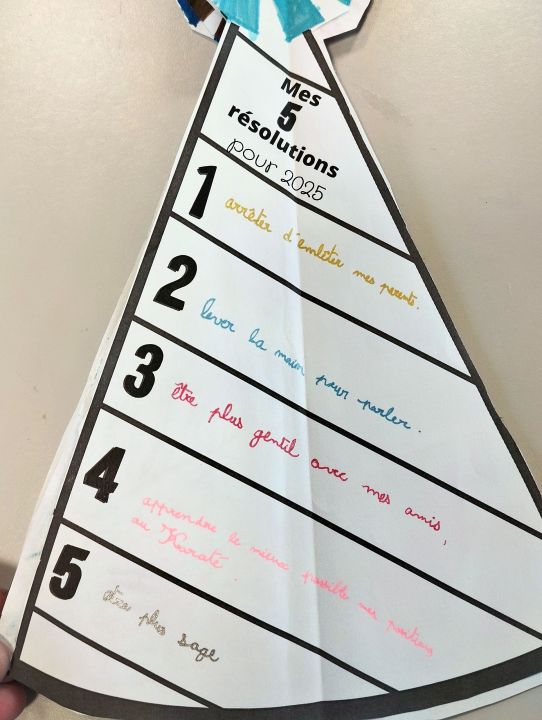 Mes
5
résolutions
pour 2025
1 arrêter d'embêter mes parents.
2 lever la main pour parler.
3 être plus gentil avec mes amis,
4 apprendre le mieux possible mes positions
au Karaté.
5 être plus sage